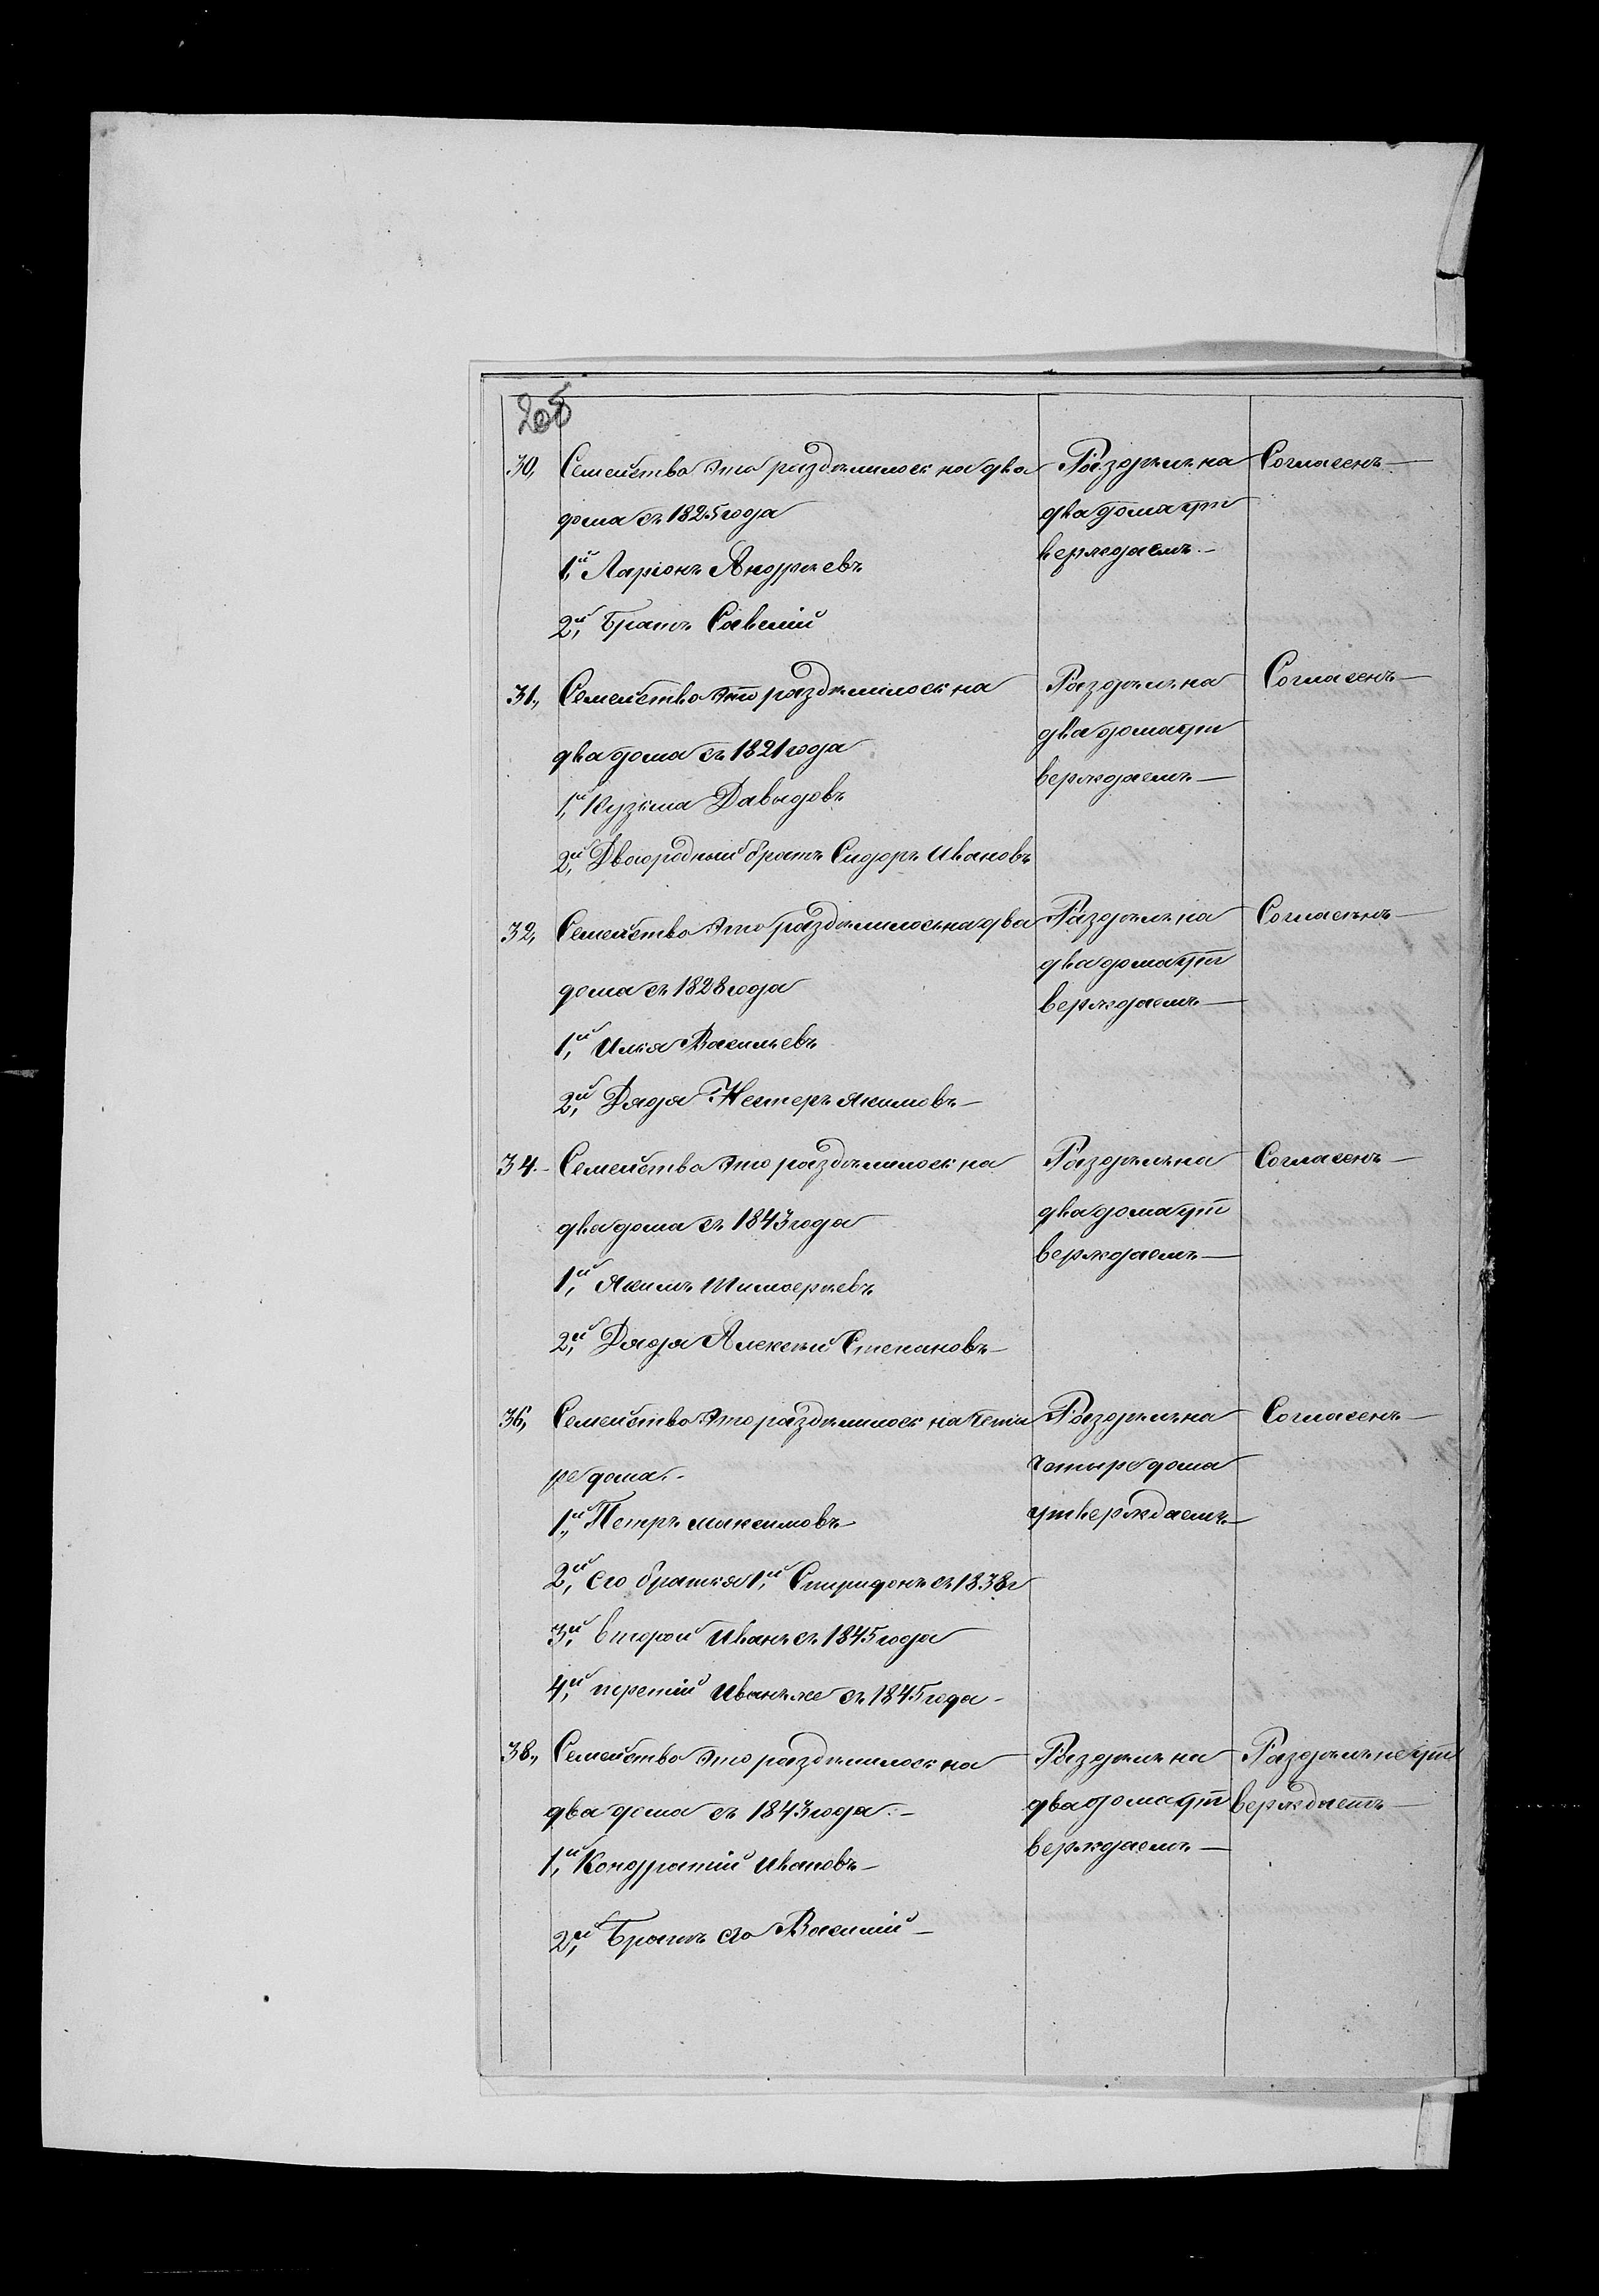 205
30, Семейство это раздѣлилось на два
дома съ 1825 года
1,й Ларіонъ Андреевъ
2,й Братъ Савелій
Раздѣлъ на
два дома ут
верждаемъ. —
Согласенъ —
31., Семейство это раздѣлилось на
два дома съ 1821 года
1,й Кузьма Давыдовъ
2,й Двоюродный братъ Сидоръ Ивановъ
Раздѣлъ на
два дома ут
верждаемъ —
Согласенъ —
32, Семейство это раздѣлилось на два
дома съ 1828 года
1,й Илья Васильевъ
2,й Дядя Нестеръ Якимовъ —
Раздѣлъ на
два дома ут
верждаемъ —
Согласенъ —
34. – Семейство это раздѣлилось на
два дома съ 1843 года
1,й Якимъ Тимофеевъ
2,й Дядя Алексѣй Степановъ —
Раздѣлъ на
два дома ут
верждаемъ —
Согласенъ —
36, Семейство это раздѣлилось на четы
ре дома. –
1,й Петръ Максимовъ
2,й его братья 1,й Спиридонъ съ 1838 г
3,й второй Иванъ съ 1845 года
4,й третій Иванъ же съ 1845 года –
Раздѣлъ на
четыре дома
утверждаемъ —
Согласенъ —
38., Семейство это раздѣлилось на
два дома съ 1843 года. –
1,й Кондратій Ивановъ —
2,й Братъ его Василій —
Раздѣлъ на
два дома ут
верждаемъ —
Раздѣлъ не ут
верждаетъ —